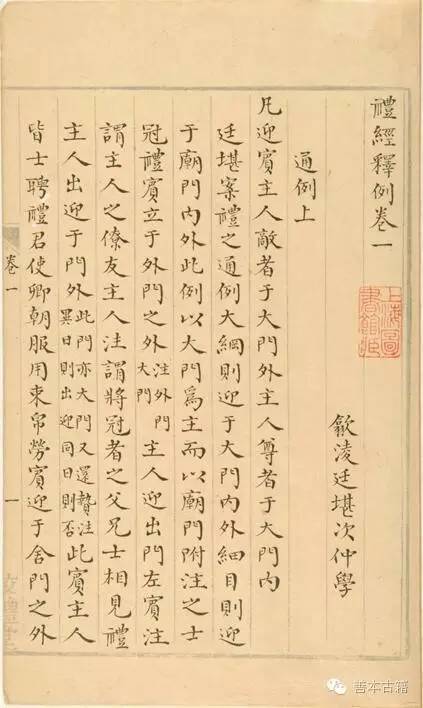 禮經釋例卷一
歙淩廷堪次仲學
通例上
凡迎賓主人敵者于大門外主人尊者于大門內
廷堪案禮之通例大綱則迎于大門內外細目則迎
于廟門內外此例以大門爲主而以廟門附注之士
冠禮賓立于外門之外注外門大門主人迎出門左賓注
謂主人之僚友主人注謂將冠者之父兄士相見禮
主人出迎于門外此門亦大門又還贄注異日則出迎同日則否此賓主人
皆士聘禮君使卿朝服用束帛勞賓迎于舍門之外
卷一
一
上海圖書館藏
善本古籍